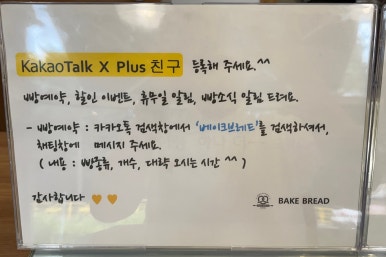 KakaoTalk X Plus 친구 등록해 주세요.^^
빵예약, 할인 이벤트, 휴무일 알림, 빵소식 알림 드려요.
- 빵예약 : 카카오톡 검색창에서 '베이크브레드'를 검색하셔서,
채팅창에 메시지 주세요.
( 내용 : 빵종류, 개수, 대략 오시는 시간 ^^ )
감사합니다 🧡🧡
BAKE BREAD